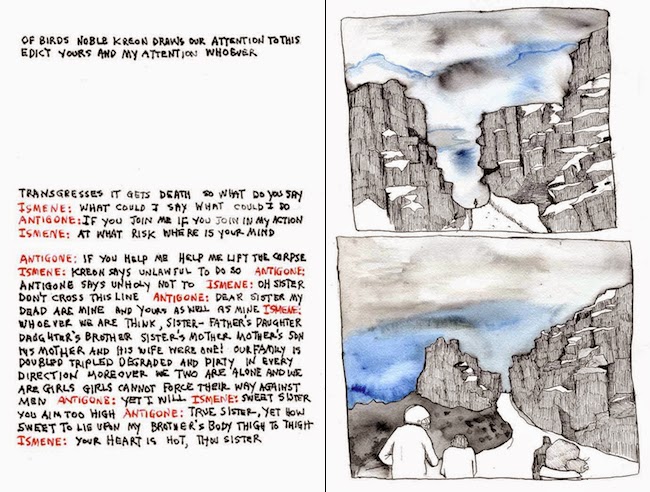 OF BIRDS NOBLE KREON DRAWS OUR ATTENTION TO THIS
EDICT YOURS AND MY ATTENTION WHOEVER
TRANSGRESSES IT GETS DEATH SO WHAT DO YOU SAY
ISMENE: WHAT COULD I SAY WHAT COULD I DO
ANTIGONE: IF YOU JOIN ME IF YOU JOIN IN MY ACTION
ISMENE: AT WHAT RISK WHERE IS YOUR MIND
ANTIGONE: IF YOU HELP ME HELP ME LIFT THE CORPSE
ISMENE: KREON SAYS UNLAWFUL TO DO SO ANTIGONE:
ANTIGONE SAYS UNHOLY NOT TO ISMENE: OH SISTER
DON'T CROSS THIS LINE ANTIGONE: DEAR SISTER MY
DEAD ARE MINE AND YOURS AS WELL AS MINE ISMENE:
WHOEVER WE ARE THINK, SISTER- FATHER'S DAUGHTER
DAUGHTER'S BROTHER SISTER'S MOTHER MOTHER'S SON
HIS MOTHER AND HIS WIFE WERE ONE! OUR FAMILY IS
DOUBLED TRIPLED DEGRADED AND DIRTY IN EVERY
DIRECTION MOREOVER WE TWO ARE ALONE AND WE
ARE GIRLS GIRLS CANNOT FORCE THEIR WAY AGAINST
MEN ANTIGONE: YET I WILL ISMENE: SWEET SISTER
YOU AIM TOO HIGH ANTIGONE: TRUE SISTER, YET HOW
SWEET TO LIE UPON MY BROTHER'S BODY THIGH TO THIGH
ISMENE: YOUR HEART IS HOT, THOU SISTER